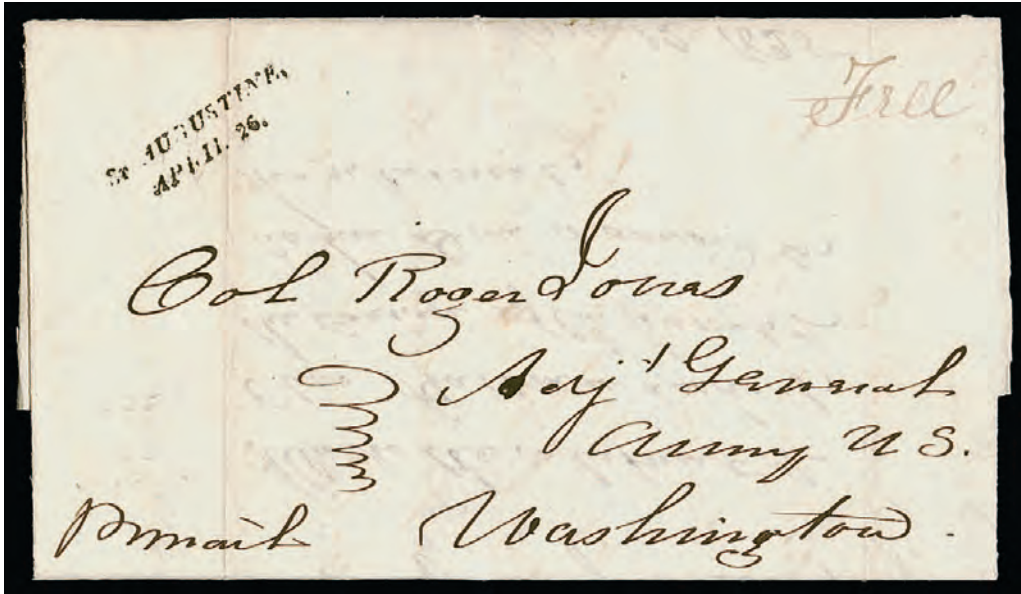 St AUGUSTINE,
APRIL 26.
Free
Col Roger Jones
Adjt General
Army U S.
Pr mail Washington.